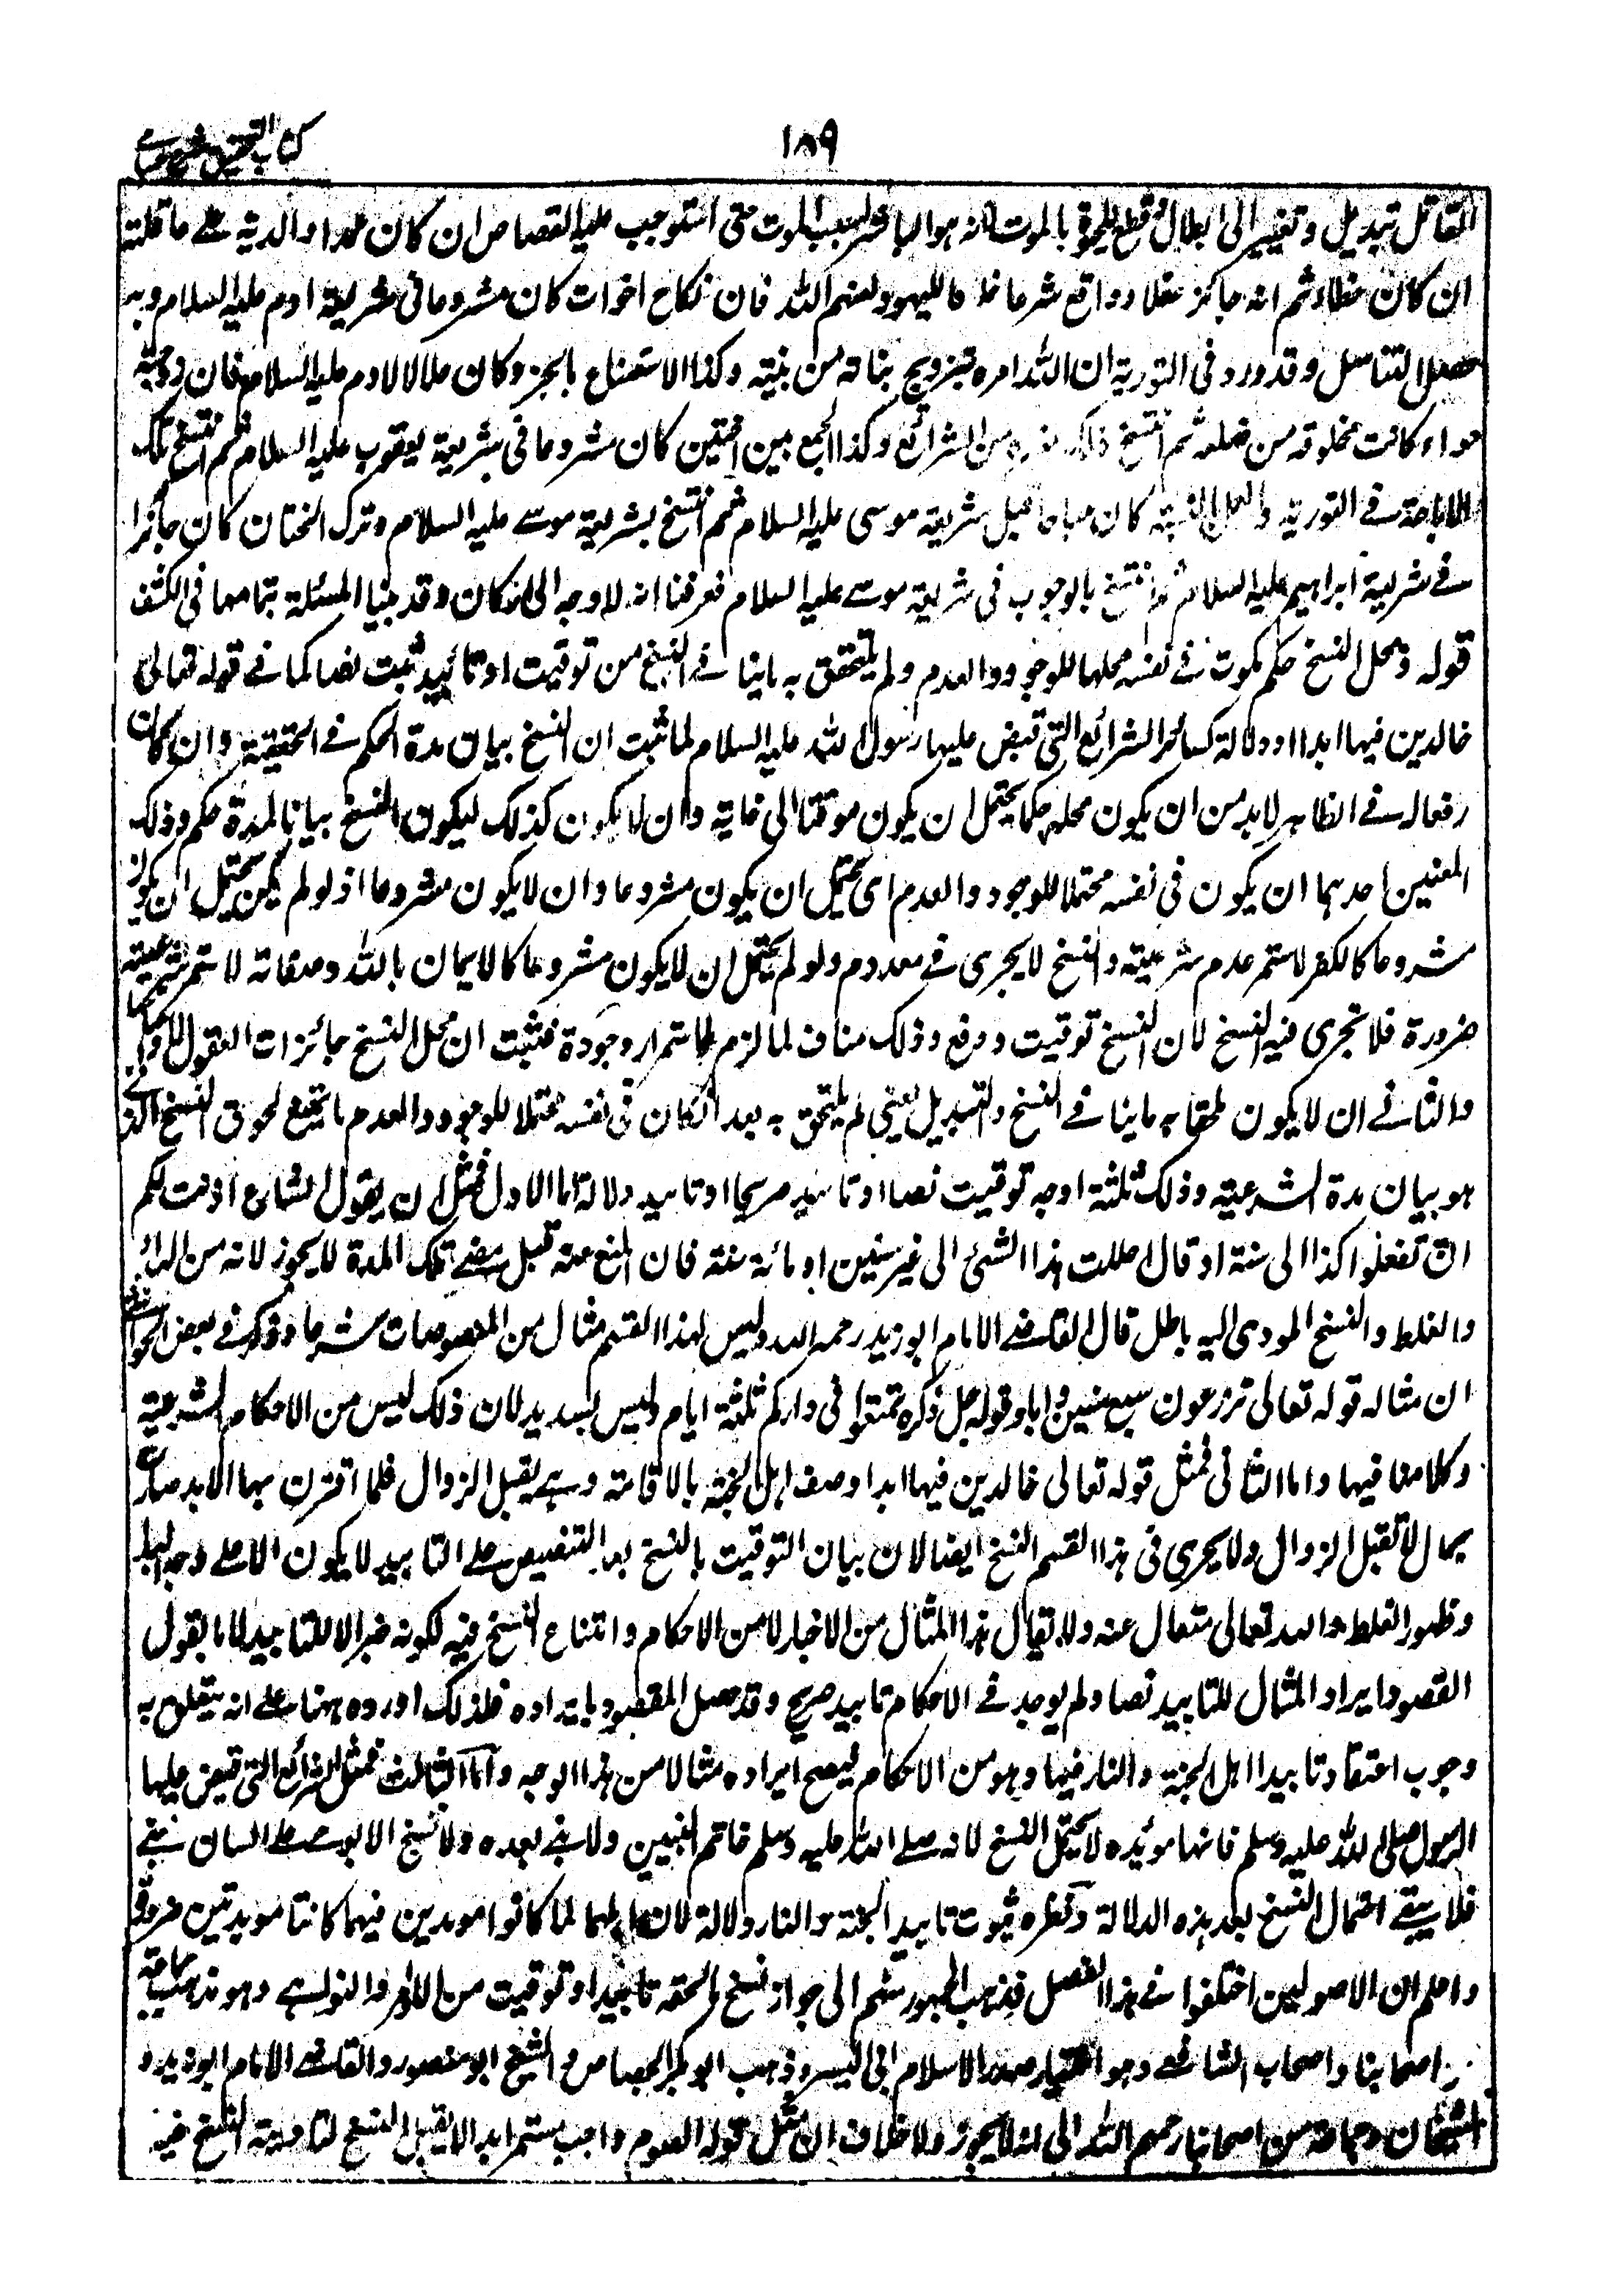 ١٨٩
كتاب التحقيق شرح حسامي
القاتل تبديل وتغيير الى ابطال وقطع للحيوة بالموت لانه هو المباشر لسبب الموت حتى استوجب عليه القصاص ان كان عمدا والدية على عاقلته
ان كان خطاء ثم انه جائز عقلا وواقع شرعا خلافا لليهود لعنهم الله فان نكاح اخوات كان مشروعا فى شريعة ادم عليه السلام وبه
حصل التناسل وقد ورد فى التورية ان الله امره بتزويج بناته من بنيه وكذا الاستمتاع بالجزء وكان حلالا لادم عليه السلام فان زوجته
حواء كانت مخلوقة من ضلعه ثم انتسخ ذلك بغيره من الشرائع وكذا الجمع بين اختين كان مشروعا فى شريعة يعقوب عليه السلام ثم انتسخ تلك
الاباحة فى التورية والعمل فى السبت كان مباحا قبل شريعة موسى عليه السلام ثم انتسخ بشريعة موسى عليه السلام وترك الختان كان جائزا
فى شريعة ابراهيم عليه السلام ثم انتسخ بالوجوب فى شريعة موسى عليه السلام فعرفنا انه لا وجه الى انكاره وقد بينا المسئلة بتمامها فى الكشف
قوله ومحل النسخ حكم يكون فى نفسه محتملا للوجود والعدم ولم يلتحق به ما ينافى النسخ من توقيت او تابيد ثبت نصا كما فى قوله تعالى
خالدين فيها ابدا او دلالة كسائر الشرائع التى قبض عليها رسول الله عليه السلام لما ثبت ان النسخ بيان مدة الحكم فى الحقيقة وان كان
رفعا له فى الظاهر لا بد من ان يكون محله حكما يحتمل ان يكون موقتا الى غاية وان لا يكون كذلك ليكون النسخ بيانا لمدة حكم وذلك
المعنيين احدهما ان يكون فى نفسه محتملا للوجود والعدم اى يحتمل ان يكون مشروعا وان لا يكون مشروعا اذ لو لم يكن يحتمل ان يكون
مشروعا كالكفر لاستمر عدم شرعيته والنسخ لا يجرى فى معدوم ولو لم يحتمل ان لا يكون مشروعا كالايمان بالله وصفاته لاستمر شرعيته
ضرورة فلا تجرى فيه النسخ لان النسخ توقيت ورفع وذلك مناف لما لزم استمرار وجوده فثبت ان محل النسخ جائزات العقول
والثانى ان لا يكون ملحقا به ما ينافى النسخ والتبديل يعنى لم يلتحق به بعد ان كان فى نفسه محتملا للوجود والعدم ما يمنع لحوق النسخ الذى
هو بيان مدة الشرعية وذلك ثلثة اوجه توقيت نصا او تابيد صريحا او تابيد دلالة اما الاول فمثل ان يقول الشارع اذنت لكم
ان تفعلوا كذا الى سنة او قال احللت هذا الشئ الى عشر سنين او مائة سنة فان المنع عنه قبل مضى تلك المدة لا يجوز لانه من البداء
والغلط والنسخ المودى اليه باطل قال القاضى الامام ابو زيد رحمه الله وليس لهذا القسم مثال من المنصوصات شرعا وذكر فى بعض الحواشى
ان مثاله قوله تعالى تزرعون سبع سنين دابا وقوله جل ذكره تمتعوا فى داركم ثلثة ايام وليس بسديد لان ذلك ليس من الاحكام الشرعية
وكلامنا فيها واما الثانى فمثل قوله تعالى خالدين فيها ابدا وصف اهل الجنة بالاقامة وهى يقبل الزوال فلما اقترن بها الابد صار
بحال لا تقبل الزوال ولا يجرى فى هذا القسم النسخ ايضا لان بيان التوقيت بالنسخ بعد التنصيص على التابيد لا يكون الا على وجه البداء
وظهور الغلط والله تعالى متعال عنه ولا يقال هذا المثال من الاخبار لا من الاحكام وامتناع النسخ فيه لكونه خبرا لا للتابيد لانا نقول
المقصود ايراد المثال للتابيد نصا ولم يوجد فى الاحكام تابيد صريح وقد حصل المقصود بايراده فلذلك اورده ههنا على انه يتعلق به
وجوب اعتقاد تابيد اهل الجنة والنار فيها وهو من الاحكام فيصح ايراده مثالا من هذا الوجه واما الثالث فمثل الشرائع التى قبض عليها
الرسول صلى الله عليه وسلم فانها مؤبدة لا يحتمل النسخ لانه صلى الله عليه وسلم خاتم النبيين ولا نبى بعده ولا نسخ الا بوحى على لسان نبى
فلا يبقى احتمال النسخ بعد هذه الدلالة ونظيره ثبوت تابيد الجنة والنار دلالة لان اهلهما لما كانوا مؤبدين فيهما كانتا مؤبدتين ضرورة
واعلم ان الاصوليين اختلفوا فى هذا الفصل فذهب الجمهور منهم الى جواز نسخ ما لحقه تابيد او توقيت من الاوامر والنواهى وهو مذهب جماعة
من اصحابنا واصحاب الشافعى وهو اختيار صدر الاسلام ابى اليسر وذهب ابو بكر الجصاص والشيخ ابو منصور والقاضى الامام ابو زيد و
الشيخان وجماعة من اصحابنا رحمهم الله الى انه لا يجوز ولا خلاف ان مثل قوله الصوم واجب مستمر ابدا لا يقبل النسخ لتادية النسخ فيه